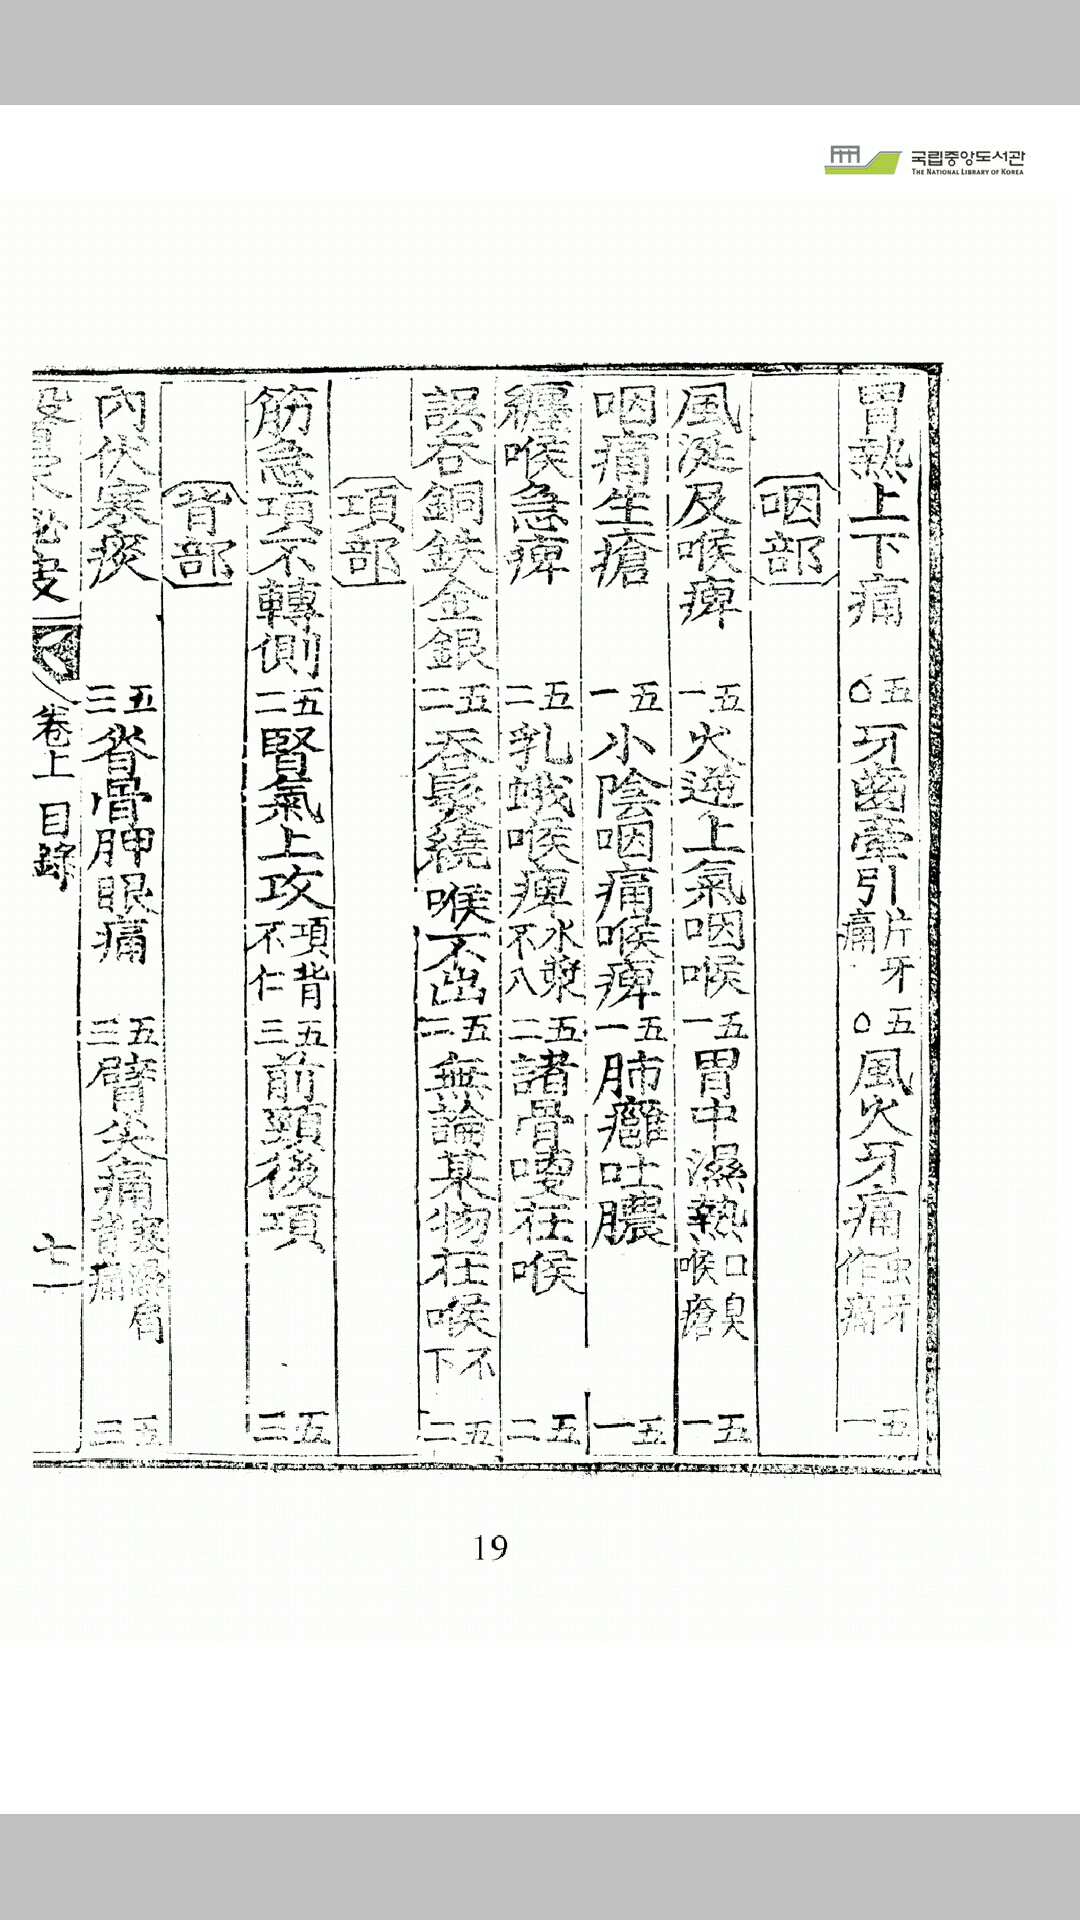 국립중앙도서관
THE NATIONAL LIBRARY OF KOREA
胃熱上下痛 五〇 牙齒牽引片牙痛 五〇 風火牙痛虫牙作痛 五一
咽部
風涎及喉痺 五一 火逆上氣咽喉 五一 胃中濕熱口臭喉瘡 五一
咽痛生瘡 五一 小陰咽痛喉痺 五一 肺癰吐膿 五一
纏喉急痺 五二 乳蛾喉痺水漿不入 五二 諸骨哽在喉 五二
誤吞銅鉄金銀 五二 吞髮繞喉不出 五二 無論某物在喉不下 五二
項部
筋急項不轉側 五二 腎氣上攻項背不仁 五三 前頸後項 五三
背部
內伏寒痰 五三 脊骨胛眼痛 五三 臂尖痛寒濕肩背痛 五三
卷上 目錄 七
19